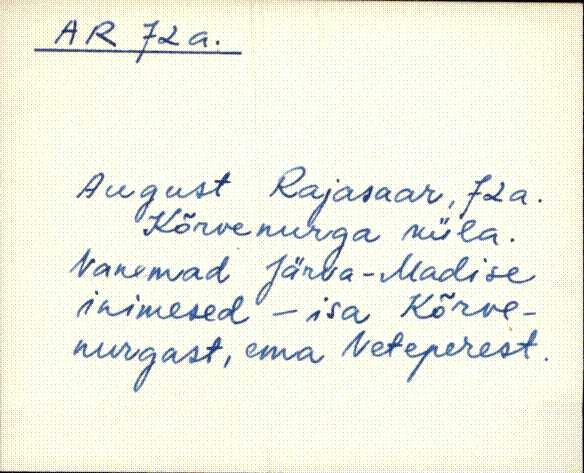 AR 72a.
August Rajasaar, 72a.
Kõrvenurga küla.
Vanemad Järva-Madise
inimesed – isa Kõrve-
nurgast, ema Veteperest.